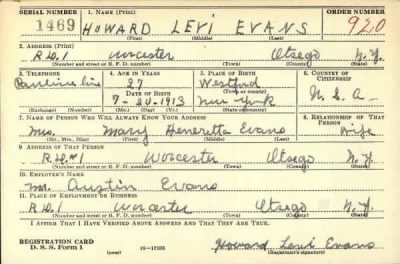 SERIAL NUMBER 1. NAME (Print) ORDER NUMBER
1469 HOWARD LEVI EVANS 920
(First) (Middle) (Last)
2. ADDRESS (Print)
R.D.1 Worcester Otsego N.Y.
(Number and street or R. F. D. number) (Town) (County) (State)
3. TELEPHONE 4. AGE IN YEARS 5. PLACE OF BIRTH 6. COUNTRY OF CITIZENSHIP
27 Westford
DATE OF BIRTH (Town or county)
7-20-1913 New York U.S.A.
(Exchange) (Number) (Mo.) (Day) (Yr.) (State or country)
7. NAME OF PERSON WHO WILL ALWAYS KNOW YOUR ADDRESS 8. RELATIONSHIP OF THAT PERSON
Mrs. Mary Heneretta Evans Wife
(Mr., Mrs., Miss) (First) (Middle) (Last)
9. ADDRESS OF THAT PERSON
R.D.#1 Worcester Otsego N.Y.
(Number and street or R. F. D. number) (Town) (County) (State)
10. EMPLOYER'S NAME
Mr. Austin Evans
11. PLACE OF EMPLOYMENT OR BUSINESS
R.D.1 Worcester Otsego N.Y.
(Number and street or R. F. D. number) (Town) (County) (State)
I AFFIRM THAT I HAVE VERIFIED ABOVE ANSWERS AND THAT THEY ARE TRUE.
REGISTRATION CARD
D. S. S. FORM 1 (over) 16—17105 Howard Levi Evans
(Registrant's signature)